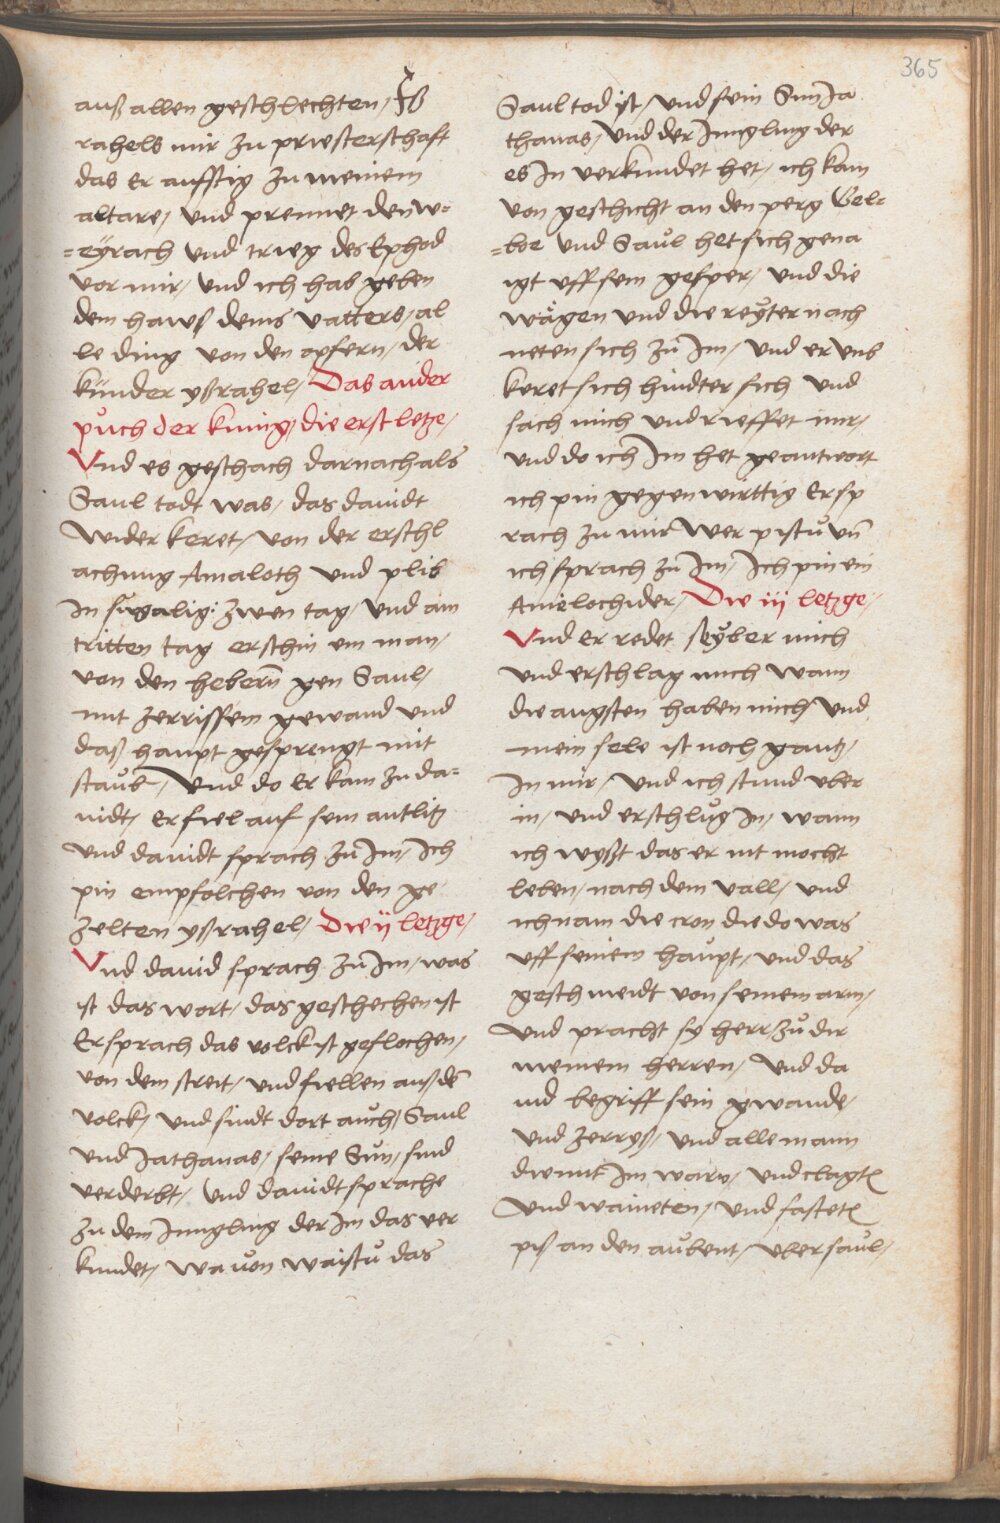 365
auß allen geschlechten, Iß
rahels mir zu priesterschaft
das er aufstig zu meinem
altare, und prennet den w=
=eÿrach und trieg des Ephod
vor mir, und ich hab geben
dem hawß deins vatters, al
le ding von den opfern, der
künder yßrahel, Das ander
pŭch der kunig, die erst letze,
Vnd es geschach darnach als
Saul todt was, das dauidt
wider keret, von der erschl
achung Amaloth und plib
in sugalig: zwen tag, und am
tritten tag erschin ein man,
von den hebern̄ gen Saul,
mit zerrissem gewand und
daß haupt gesprengt mit
staŭb, Vnd do er kam zu da=
uidt, er fiel auf sein antlitz
und dauidt sprach zŭ im, Ich
pin empfolchen von den ge
zelten yßrahel, Die ij letzge,
Vnd dauid sprach zŭ im, was
ist das wort, das geschechen ist
Er sprach das volck ist geflochen,
von dem streit, und fiellen auß dē
volck, und sindt dort aŭch, Saul
und Jathanas, seine Sŭn, sind
verderbt, Und dauidt sprache
zŭ dem Jungling der im das ver
kundet, wa uon waistŭ das
Saul tod ist, und sein Sun Ja
thanas, und der Jungling der
es in verkundet het, ich kam
von geschicht an den perg Gel=
=boe und Saŭl het sich gena
igt uff sein gesper, und die
wägen und die reÿter nach
neten sich zŭ im, und er umb
keret sich hindter sich und
sach mich und rieffet mir,
und do ich im het geantwort
ich pin gegenwirttig Er sp
rach zu mir Wer pistŭ un̄
ich sprach zŭ im, Ich pin ein
Amelochider, Die iij letzge,
Vnd er redet seÿber mich
und erschlag mich wann
die angsten haben mich und
mein sele ist noch gantz,
in mir, und ich stund uber
in, und erschlŭg in, wann
ich wyßt das er nit mocht
leben, nach dem vall, und
ich nam die cron die do was
uff seinem haŭpt, und das
geschmeidt von seinem arm,
und pracht sy herr, zŭ dir
meinem herren, und da
uid begriff sein gwande,
und zerryß, und alle mann
die mit im warn, und clagtē
und waineten, und fastetē
piß an den aŭbent, uber saŭl,